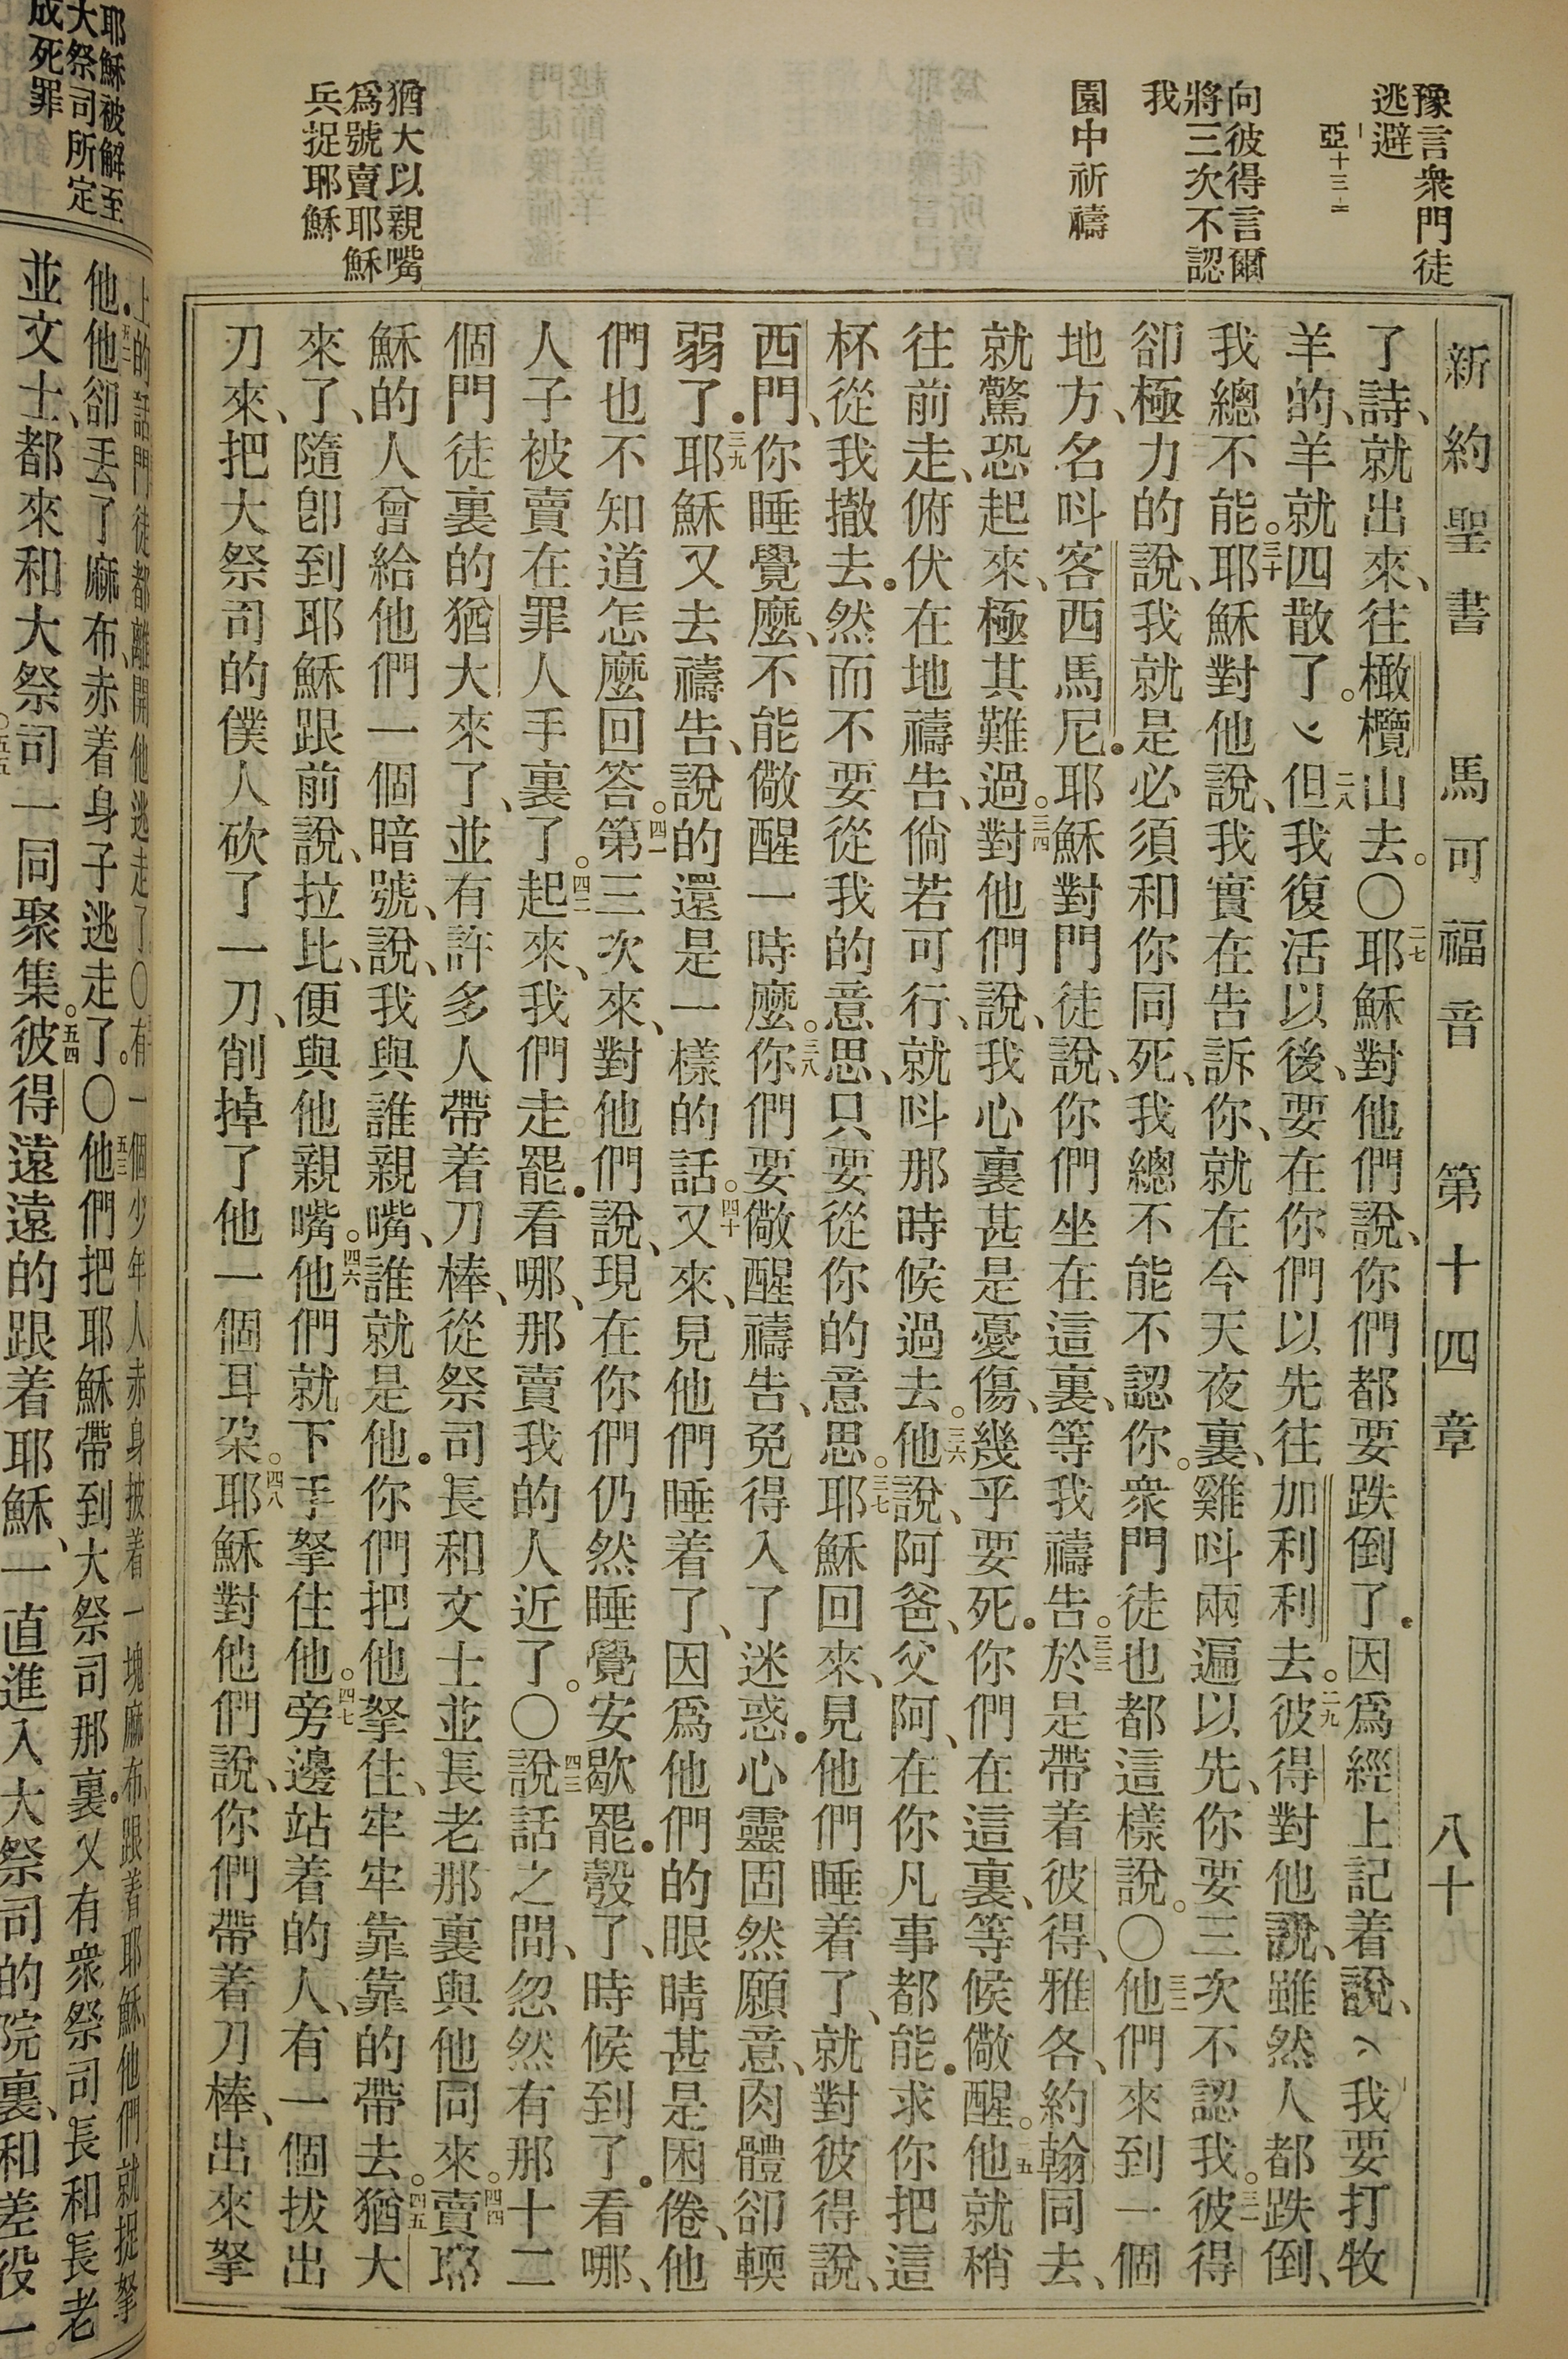 豫言衆門徒
逃避
亞十三·
向彼得言爾
將三次不認
我
園中祈禱
猶大以親嘴
爲號賣耶穌
兵捉耶穌
新約聖書 馬可福音 第十四章 八十
了詩、就出來、往橄欖山去。〇二七耶穌對他們說、你們都要跌倒了．因爲經上記着說、我要打牧
羊的、羊就四散了。二八但我復活以後、要在你們以先往加利利去。二九彼得對他說、雖然人都跌倒、
我總不能。三十耶穌對他說、我實在告訴你、就在今天夜裏、雞呌兩遍以先、你要三次不認我。三一彼得
卻極力的說、我就是必須和你同死、我總不能不認你。衆門徒也都這樣說。〇三二他們來到一個
地方、名呌客西馬尼．耶穌對門徒說、你們坐在這裏、等我禱告。三三於是帶着彼得、雅各、約翰同去、
就驚恐起來、極其難過。三四對他們說、我心裏甚是憂傷、幾乎要死．你們在這裏、等候儆醒。三五他就稍
往前走、俯伏在地禱告、倘若可行、就呌那時候過去。三六他說、阿爸、父阿、在你凡事都能．求你把這
杯從我撤去．然而不要從我的意思、只要從你的意思。三七耶穌回來、見他們睡着了、就對彼得說、
西門、你睡覺麼、不能儆醒一時麼。三八你們要儆醒禱告、免得入了迷惑．心靈固然願意、肉體卻輭
弱了．三九耶穌又去禱告、說的還是一樣的話。四十又來、見他們睡着了、因爲他們的眼睛甚是困倦、他
們也不知道怎麼回答。四一第三次來、對他們說、現在你們仍然睡覺安歇罷．彀了、時候到了．看哪、
人子被賣在罪人手裏了。四二起來、我們走罷．看哪、那賣我的人近了。〇四三說話之間、忽然有那十二
個門徒裏的猶大來了、並有許多人帶着刀棒、從祭司長和文士並長老那裏與他同來。四四賣耶
穌的人曾給他們一個暗號、說、我與誰親嘴、誰就是他．你們把他拏住、牢牢靠靠的帶去。四五猶大
來了、隨卽到耶穌跟前說、拉比、便與他親嘴。四六他們就下手拏住他。四七旁邊站着的人、有一個拔出
刀來、把大祭司的僕人砍了一刀、削掉了他一個耳朶。四八耶穌對他們說、你們帶着刀棒、出來拏
耶穌被解至
大祭司所定
成死罪
上的話門徒都離開他逃走了〇有一個少年人赤身披着一塊麻布跟着耶穌他們就捉拏
他．五二他卻丟了麻布、赤着身子逃走了。〇五三他們把耶穌帶到大祭司那裏．又有衆祭司長和長老
並文士、都來和大祭司一同聚集。五四彼得遠遠的跟着耶穌、一直進入大祭司的院裏、和差役一